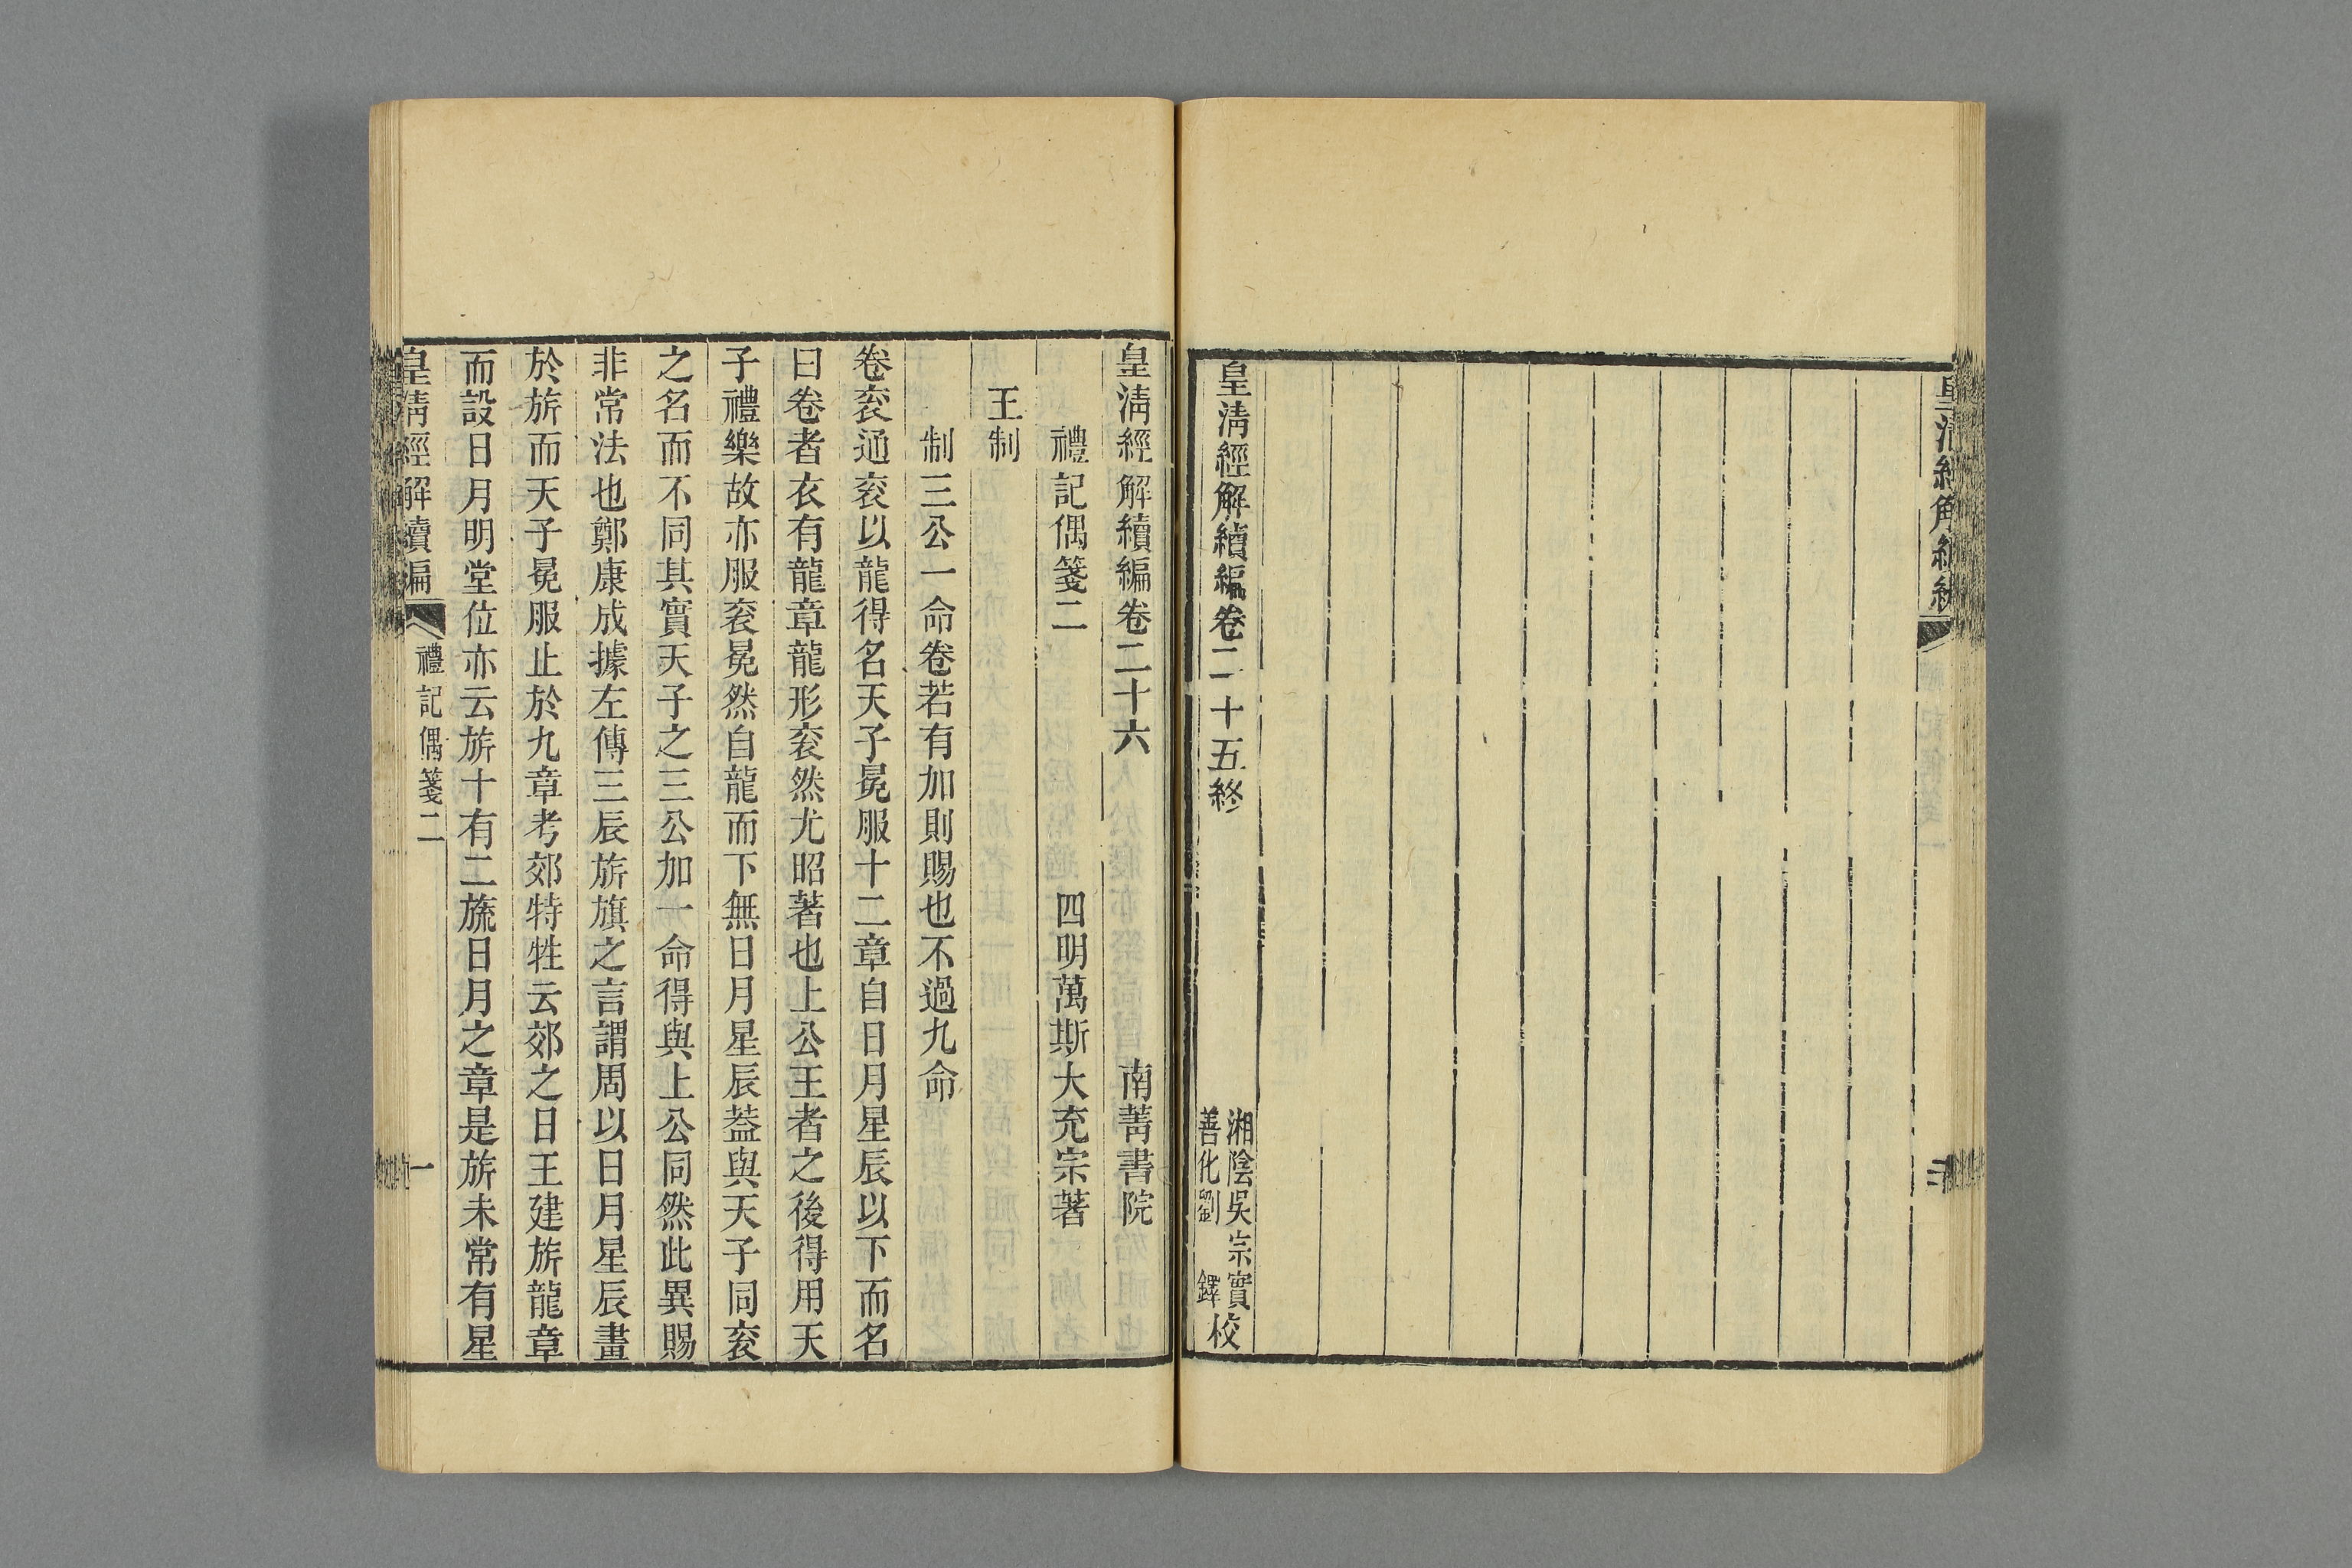 皇清經解續編卷二十五終
湘陰吳宗實
善化劉 鐸
校
皇清經解續編卷二十六
南菁書院
禮記偶箋二
四明萬斯大充宗著
王制
制三公一命卷若有加則賜也不過九命
卷衮通衮以龍得名天子冕服十二章自日月星辰以下而名
曰卷者衣有龍章龍形衮然尤昭著也上公王者之後得用天
子禮樂故亦服衮冕然自龍而下無日月星辰葢與天子同衮
之名而不同其實天子之三公加一命得與上公同然此異賜
非常法也鄭康成據左傳三辰旂旗之言謂周以日月星辰畫
於旂而天子冕服止於九章考郊特牲云郊之日王建旂龍章
而設日月明堂位亦云旂十有二旒日月之章是旂未常有星
皇清經解續編
禮記偶箋二
一